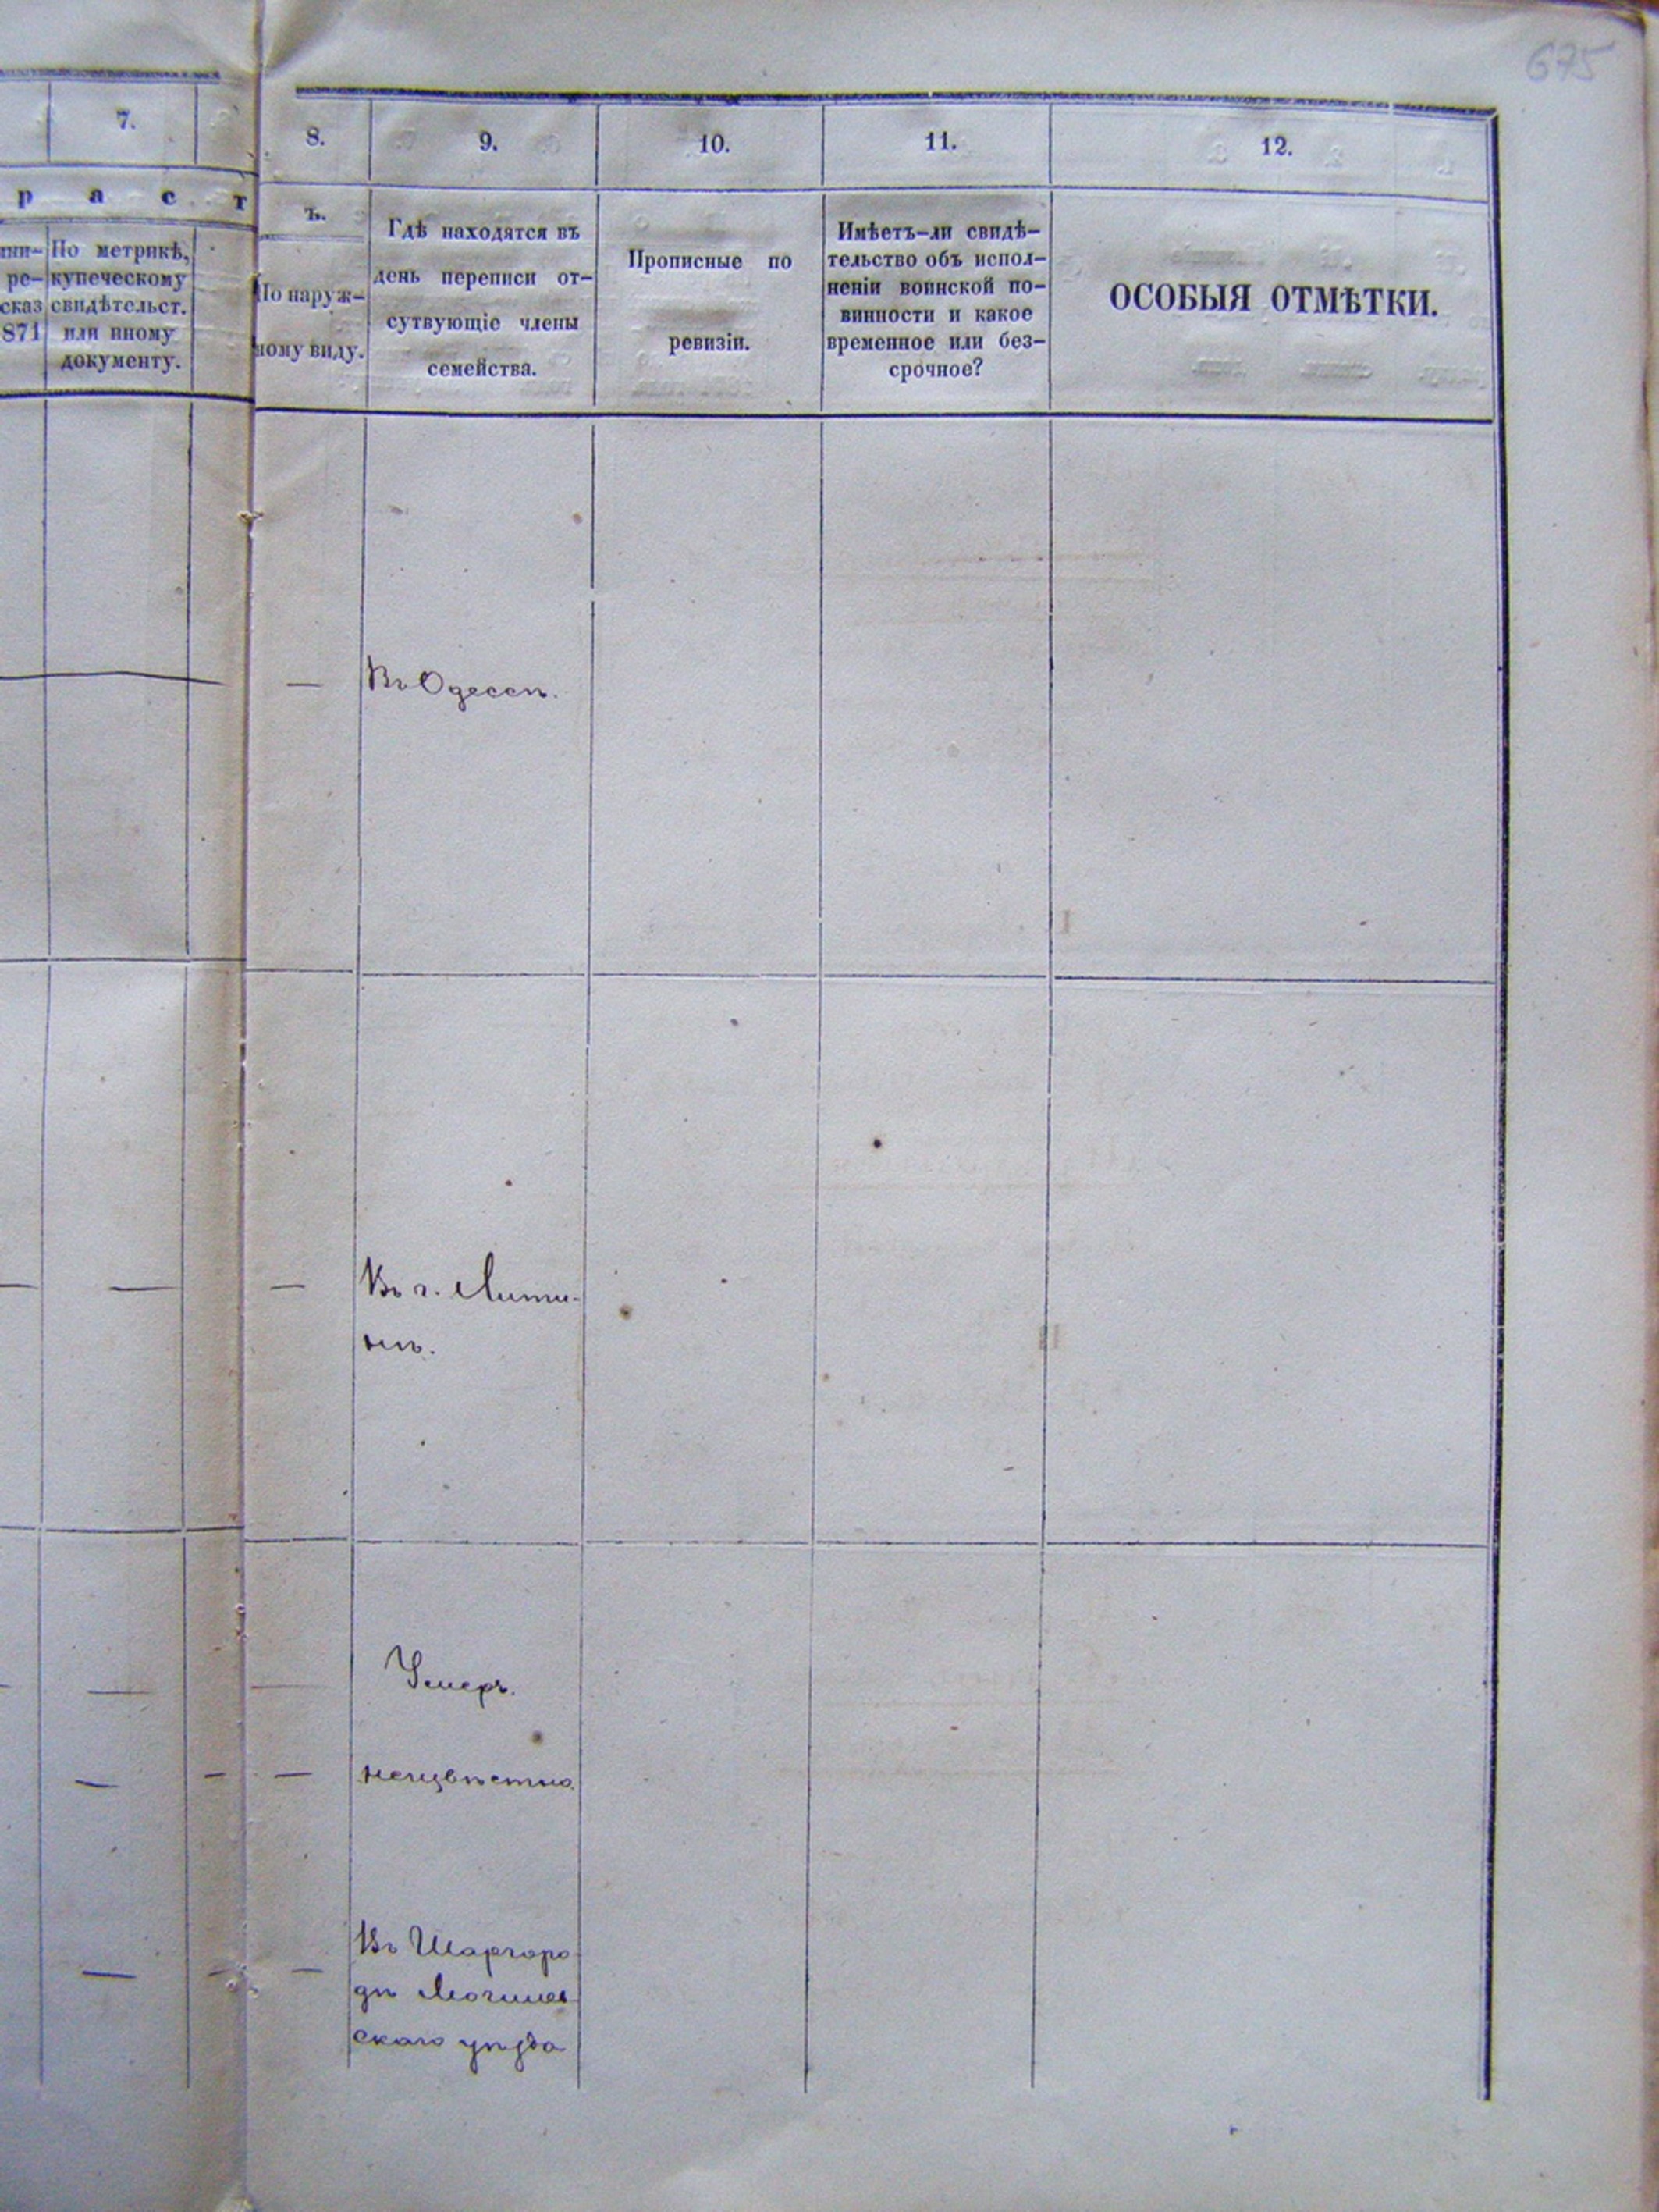 675
7.
8.
9.
10.
11.
12.
р а с т
ъ.
ини-
ре-
сказ
871
По метрикѣ,
купеческому
свидѣтельст.
или иному
документу.
По наруж-
ному виду.
Гдѣ находятся въ
день переписи от-
сутвующіе члены
семейства.
Прописные по
ревизіи.
Имѣетъ-ли свидѣ-
тельство объ испол-
неніи воинской по-
винности и какое
временное или без-
срочное?
ОСОБЫЯ ОТМѢТКИ.
— Въ Одессѣ.
— — — Въ г. Лити-
нѣ.
— — Умеръ.
— — — неизвѣстно.
— — — Въ Шаргоро
дѣ Могилев
скаго уѣзда